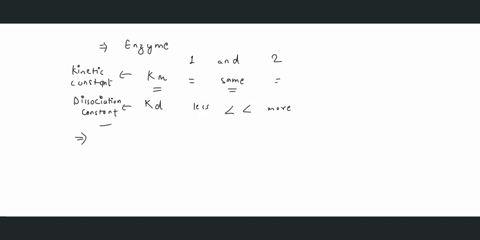 ⇒ Enzyme 1 and 2
Kinetic constant ← Km = same =
Dissociation constant ← Kd less < < more
⇒